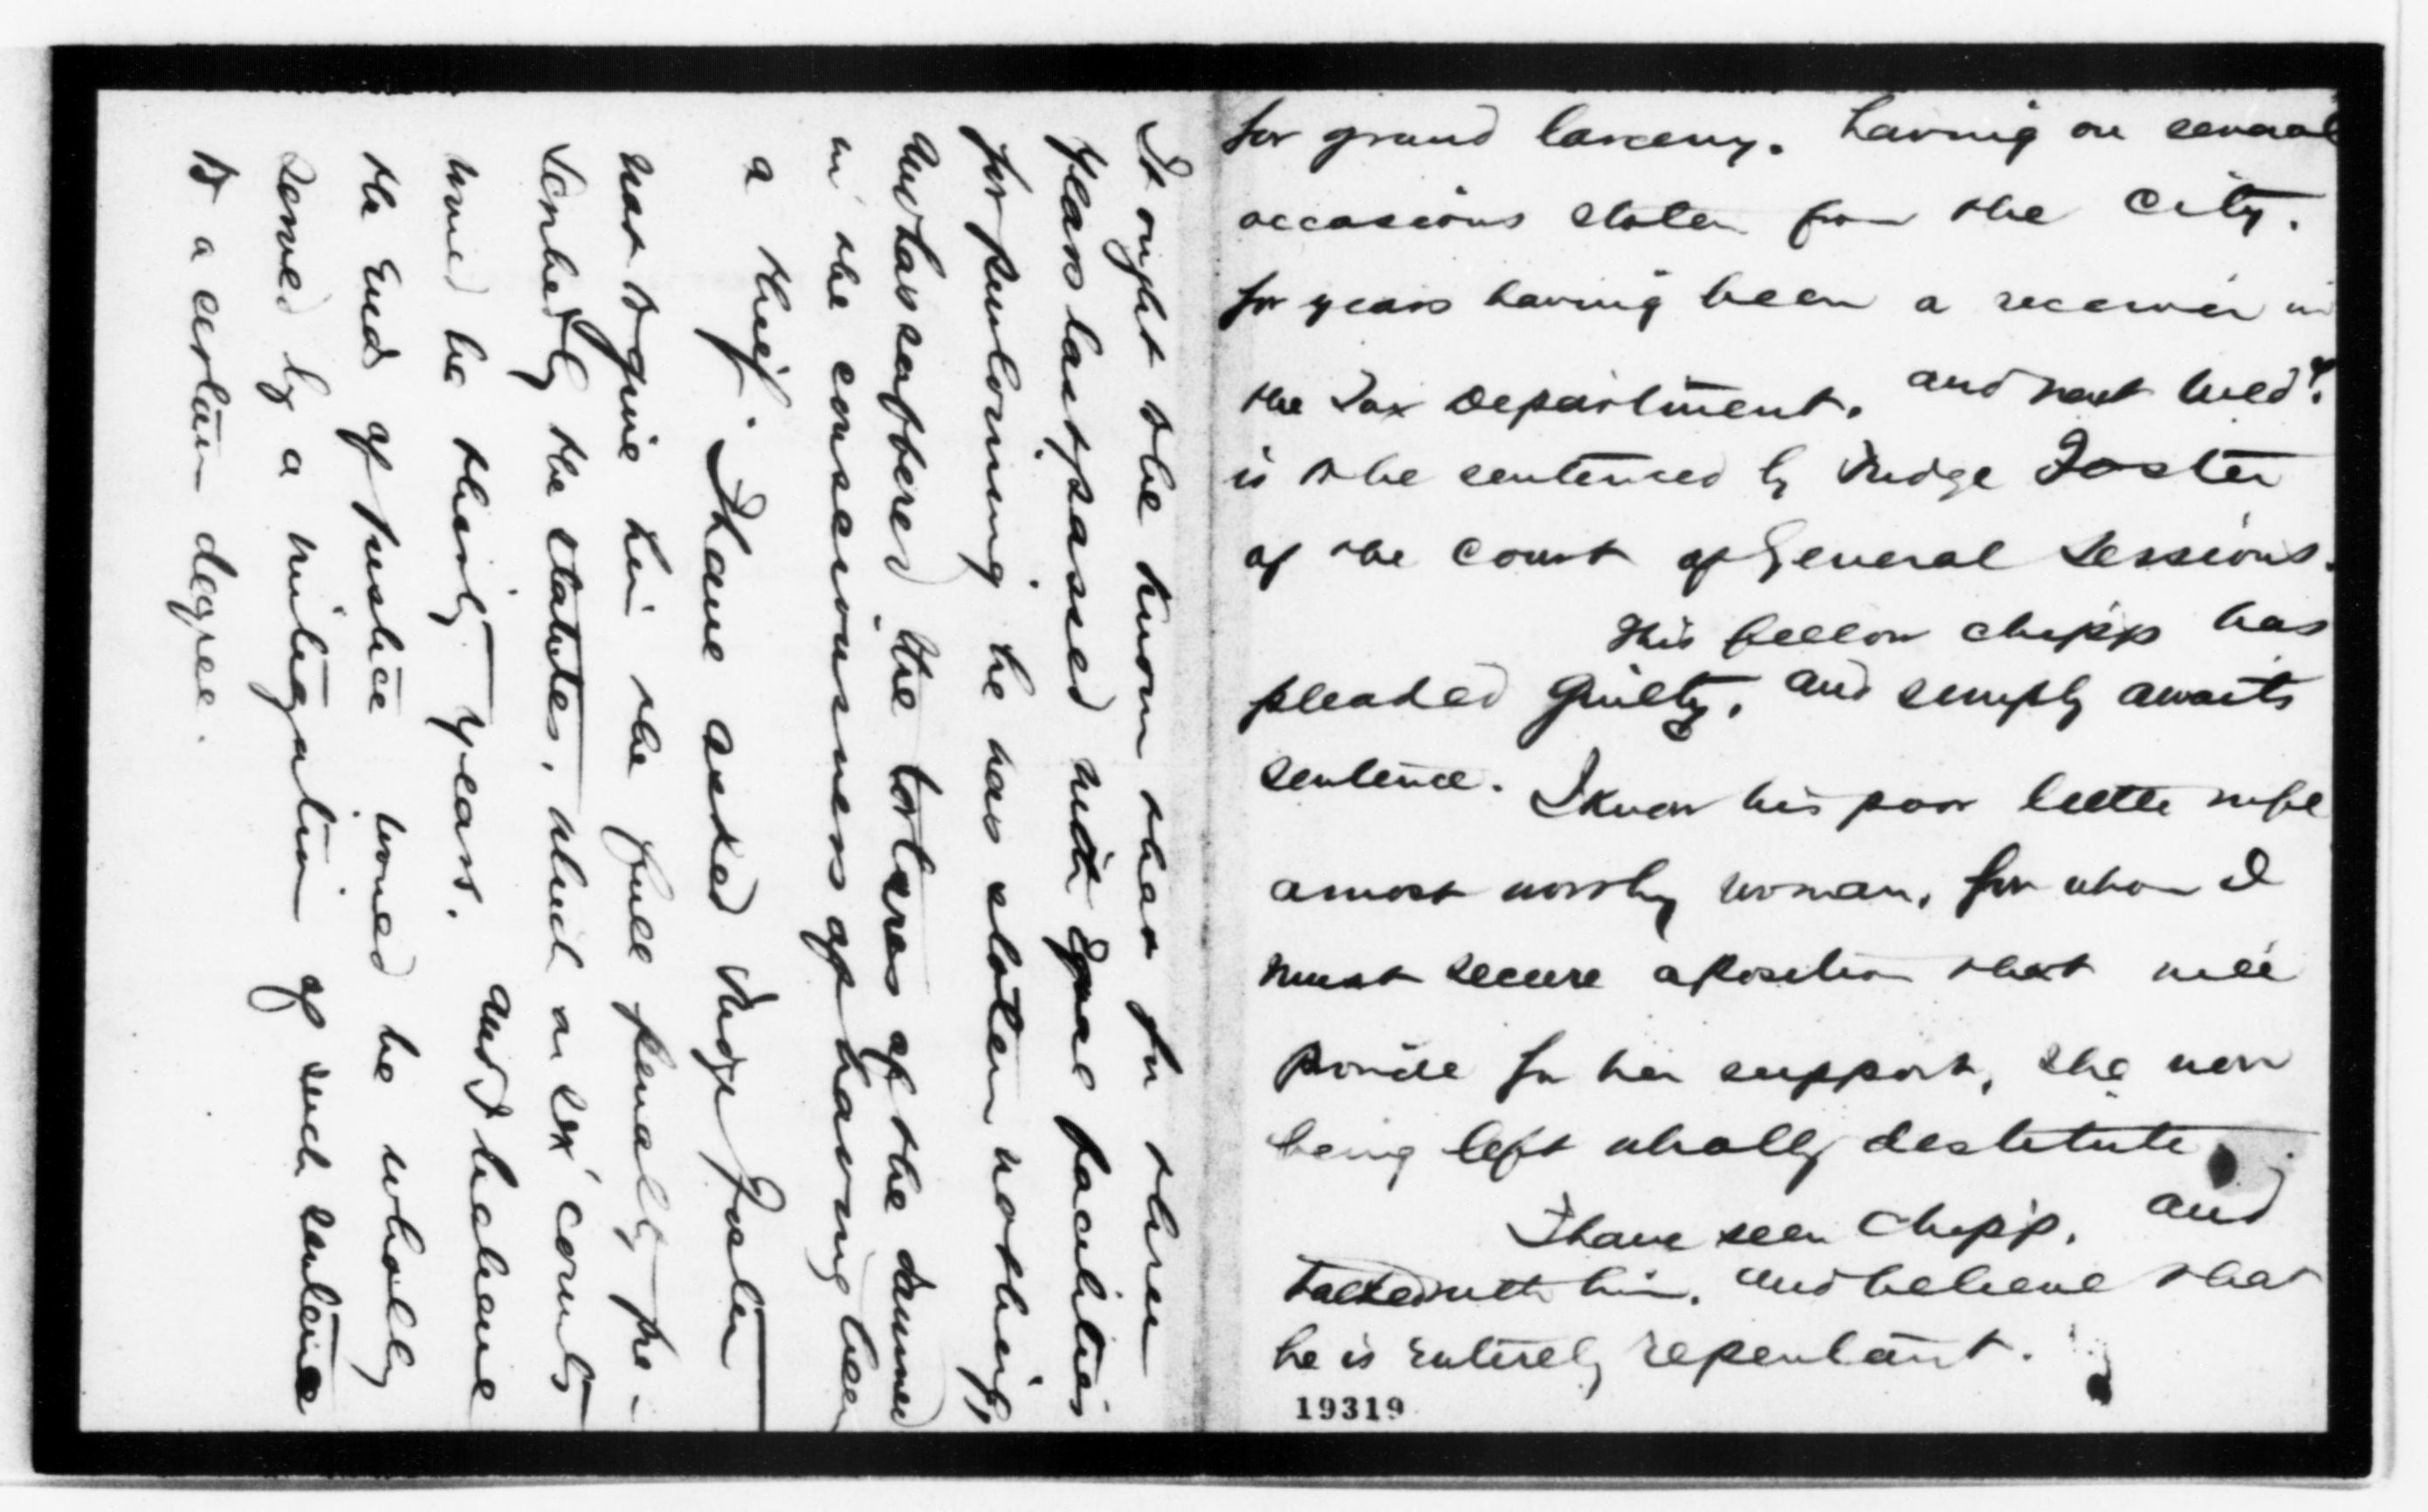 for grand larceny. having on several
occasions stolen from the City.
for years having been a receiver in
the Tax Department. and next Wed?.
is to be sentenced by Judge Foster
of the Court of General Sessions.
This fellow Chipp has
pleaded Guilty, and simply awaits
sentence. I know his poor little wife
a most worthy woman, for whom I
must secure a position that will
provide for her support, she now
being left wholly destitute
I have seen Chipp, and
talked with him, and believe that
he is entirely repentant.
19319
It ought to be known that for three
years last passed with equal facilities
for purloining he has stolen nothing,
and has suffered the tortures of the damned
in the consciousness of having been
a thief. I have asked Judge Foster
not to give him the full penalty pre-
scribed by the statutes, which on six counts
would be thirty years. and I believe
the End of Justice would be wholly
served by a mitigation of such sentence
to a certain degree.